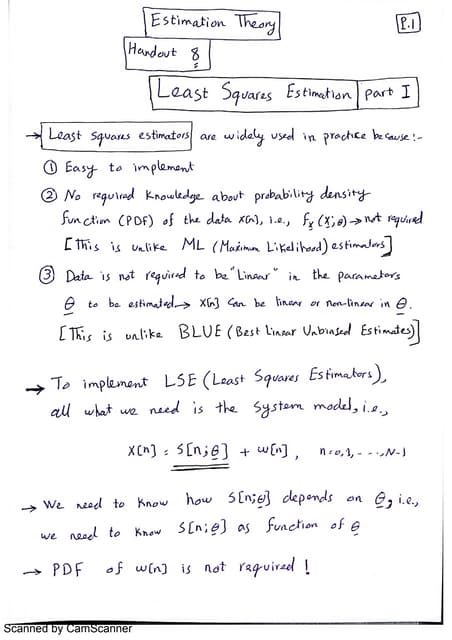 Estimation Theory
P.1
Handout 8
Least Squares Estimation part I
→ Least squares estimators are widely used in practice because:-
① Easy to implement
② No required knowledge about probability density
function (PDF) of the data x[n], i.e., fx(x;θ) → not required
[This is unlike ML (Maximum Likelihood) estimators]
③ Data is not required to be "Linear" in the parameters
θ to be estimated → x[n] can be linear or non-linear in θ.
[This is unlike BLUE (Best Linear Unbiased Estimates)]
→ To implement LSE (Least Squares Estimators),
all what we need is the system model, i.e.,
x[n] = s[n;θ] + w[n], n=0,1,---,N-1
→ We need to know how s[n;θ] depends on θ, i.e.,
we need to know s[n;θ] as function of θ
→ PDF of w[n] is not required!
Scanned by CamScanner